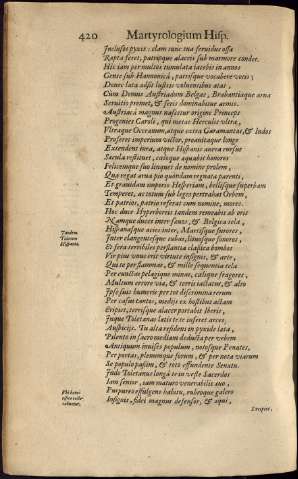 420 Martyrologium Hisp.
Inclusos pyxis: clam nunc tua seruidus ossa
Rapta feret, patrioque alacris sub marmore condet.
Hîc iam per multos tumulata iacebis in annos
Gente sub Hannonica, patrisque vocabere vocis;
Donec lata adsit lustris voluentibus ætas;
Cùm Domus Austriadum Belgas, Brabantiaque arua
Seruitio premet, & feris dominabitur armis.
Austriacâ magnus nascetur origine Princeps
Progenies Caroli, qui metas Herculis vltra,
Vltraque Oceanum, atque extra Garamantas, & Indos
Proferet imperium vallor, proauitaque longè
Extendent iura, atque Hispanis aurea rursus
Sæcula restituet, cæloque æquabit honores
Felicemque suo linques de nomine prolem,
Qua regat arua pio quondam regnata parenti,
Et grauidam imperiis Hesperiam, bellisque superbam
Temperet, ac totum sub leges pertrahat Orbem,
Et patrios, patrio referat cum nomine, mores.
Hoc duce Hyperboreis tandem remeabis ab oris
Namque duces inter sanct, & Belgica tela,
Hispanasque acies inter, Martisque furores,
Inter clangentesque tubas, lituosque sonoros,
Et fera terribiles perstantia classica bombos
Vir pius vnus erit virtute insignis, & arte,
Qui te per summas, & mille frequentia tela
Per cunctas pelagique minas, cælique fragores,
Multum errore via, & terris iactatus, & alto
Ipse suis humeris per tot discrimina rerum
Per casus tantos, medijs ex hostibus actam
Eripiet, terrisque alacer portabit Iberis,
Inque Toletanas latis te te inferet arces,
Auspicijs. Tu alta residens in pyxide lata,
Pilento in sacro mediam deducta per vrbem
Antiquum inuises populum, notosque Penates,
Per portas, plenumque forum, & per nota viarum
Se populo passim, & toto effundente Senatu.
Inde Toletanus longâ te in veste Sacerdos
Iam senior, iam maturo venerabilis æuo,
Purpureo effulgens habitu, rubroque galero
Insignis, fidei magnus defensor, & æqui,
Tandem
Toletum
Hispania.
Philippi